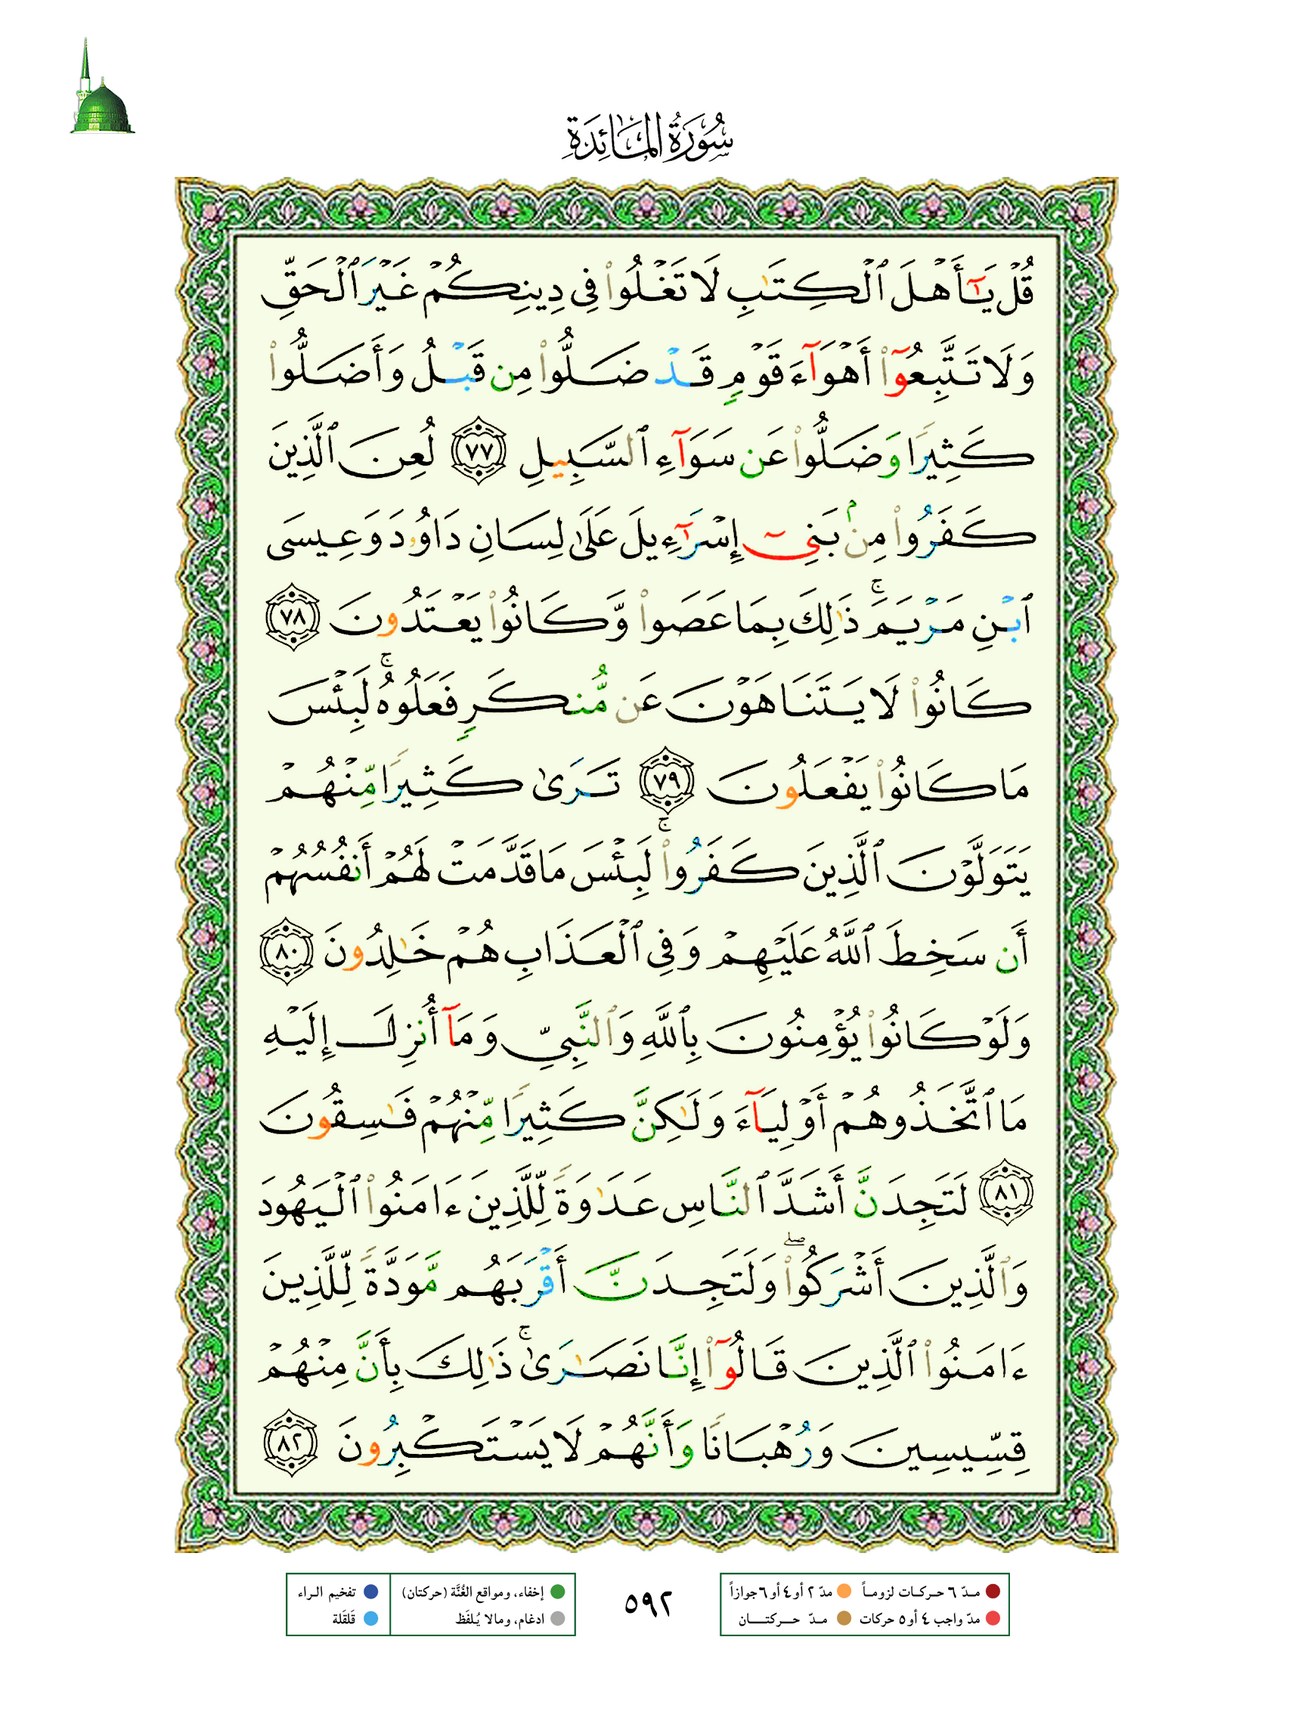 سُورَةُ المَائِدَةِ
قُلْ يَٰٓأَهْلَ ٱلْكِتَٰبِ لَا تَغْلُوا۟ فِى دِينِكُمْ غَيْرَ ٱلْحَقِّ
وَلَا تَتَّبِعُوٓا۟ أَهْوَآءَ قَوْمٍ قَدْ ضَلُّوا۟ مِن قَبْلُ وَأَضَلُّوا۟
كَثِيرًا وَضَلُّوا۟ عَن سَوَآءِ ٱلسَّبِيلِ ٧٧ لُعِنَ ٱلَّذِينَ
كَفَرُوا۟ مِنۢ بَنِىٓ إِسْرَٰٓءِيلَ عَلَىٰ لِسَانِ دَاوُۥدَ وَعِيسَى
ٱبْنِ مَرْيَمَ ۚ ذَٰلِكَ بِمَا عَصَوا۟ وَّكَانُوا۟ يَعْتَدُونَ ٧٨
كَانُوا۟ لَا يَتَنَاهَوْنَ عَن مُّنكَرٍ فَعَلُوهُ ۚ لَبِئْسَ
مَا كَانُوا۟ يَفْعَلُونَ ٧٩ تَرَىٰ كَثِيرًا مِّنْهُمْ
يَتَوَلَّوْنَ ٱلَّذِينَ كَفَرُوا۟ ۚ لَبِئْسَ مَا قَدَّمَتْ لَهُمْ أَنفُسُهُمْ
أَن سَخِطَ ٱللَّهُ عَلَيْهِمْ وَفِى ٱلْعَذَابِ هُمْ خَٰلِدُونَ ٨٠
وَلَوْ كَانُوا۟ يُؤْمِنُونَ بِٱللَّهِ وَٱلنَّبِىِّ وَمَآ أُنزِلَ إِلَيْهِ
مَا ٱتَّخَذُوهُمْ أَوْلِيَآءَ وَلَٰكِنَّ كَثِيرًا مِّنْهُمْ فَٰسِقُونَ
٨١ لَتَجِدَنَّ أَشَدَّ ٱلنَّاسِ عَدَٰوَةً لِّلَّذِينَ ءَامَنُوا۟ ٱلْيَهُودَ
وَٱلَّذِينَ أَشْرَكُوا۟ ۖ وَلَتَجِدَنَّ أَقْرَبَهُم مَّوَدَّةً لِّلَّذِينَ
ءَامَنُوا۟ ٱلَّذِينَ قَالُوٓا۟ إِنَّا نَصَٰرَىٰ ۚ ذَٰلِكَ بِأَنَّ مِنْهُمْ
قِسِّيسِينَ وَرُهْبَانًا وَأَنَّهُمْ لَا يَسْتَكْبِرُونَ ٨٢
مـدّ ٦ حركات لزوماً مدّ ٢ أو ٤ أو ٦ جوازاً
مدّ واجب ٤ أو ٥ حركات مـدّ حركتـان
٥٩٢
إخفاء، ومواقع الغُنَّة (حركتان) تفخيم الراء
ادغام، ومالا يُلفَظ قلقلة